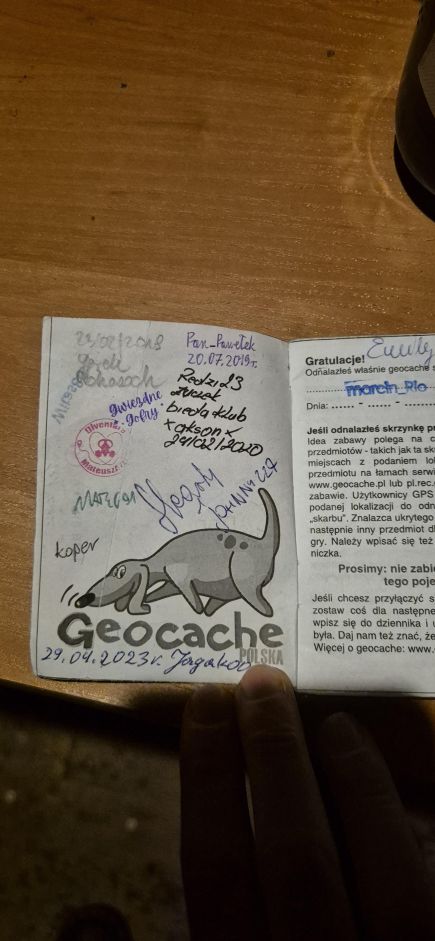 23/02/2019
Jacek
Mirosek
Pan_Pawełek
20.07.2019r.
Redzi23
żuczek
bieda klub
x akson x
29/02/2020
gwiezdne
Mateusz
koper
Geocache
POLSKA
29.04.2023r.
Gratulacje!
Odnalazłeś właśnie geocache s
marcin_Rio
Dnia: ...... - ...... - ......
Jeśli odnalazłeś skrzynkę pr
Idea zabawy polega na c
przedmiotów - takich jak ta sk
miejscach z podaniem lol
przedmiotu na łamach serwi
www.geocache.pl lub pl.rec.
zabawie. Użytkownicy GPS
podanej lokalizacji do odn
„skarbu”. Znalazca ukrytego
następnie inny przedmiot dl
gry. Należy wpisać się też
niczka.
Prosimy: nie zabie
tego poje
Jeśli chcesz przyłączyć s
zostaw coś dla następne
wpisz się do dziennika i u
była. Daj nam też znać, że
Więcej o geocache: www.